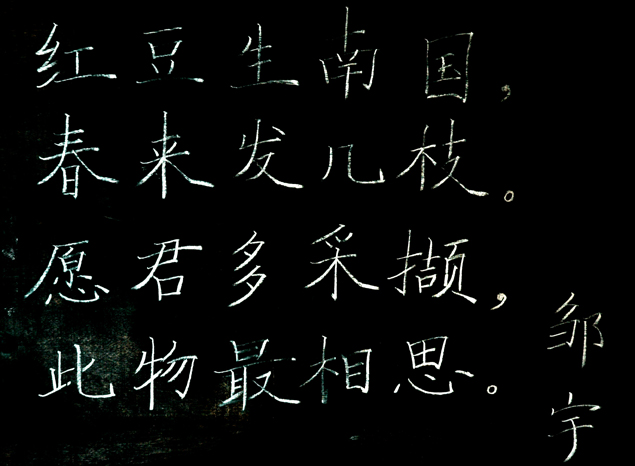 红豆生南国，
春来发几枝。
愿君多采撷，
此物最相思。
邹宇